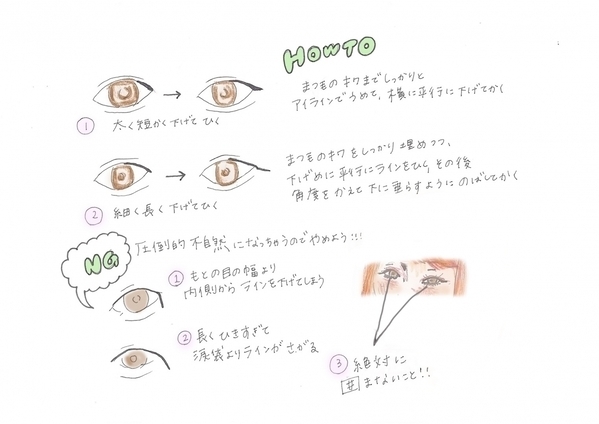 HOWTO
まつ毛のキワまでしっかりと
アイラインでうめて、横に平行に下げてかく
① 太く短かく下げてひく
まつ毛のキワをしっかり埋めつつ、
下げめに平行にラインをひく、その後
角度をかえて下に垂らすようにのばしてかく
② 細く長く下げてひく
NG
圧倒的不自然になっちゃうのでやめよう!!!
① もとの目の幅より
内側からラインを下げてしまう
② 長くひきすぎて
涙袋よりラインがさがる
③ 絶対に
囲まないこと!!